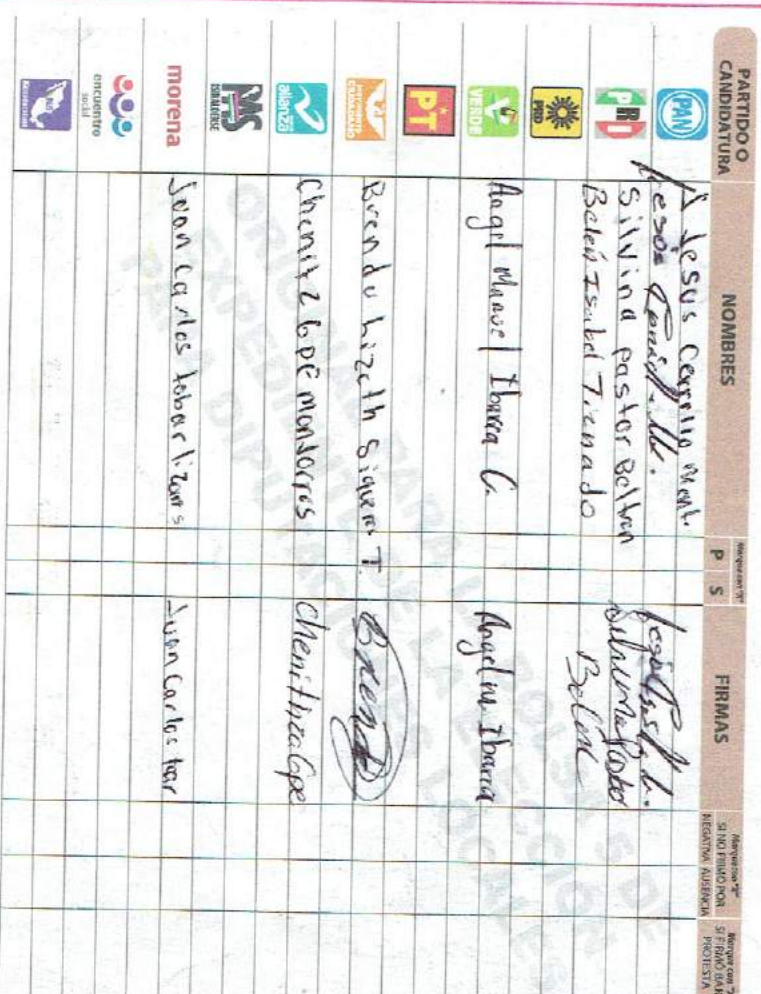 PARTIDO O CANDIDATURA
NOMBRES
Marque con "X"
P S
FIRMAS
Marque con "X" SI NO FIRMÓ POR
NEGATIVA AUSENCIA
Marque con "X" SI FIRMÓ BAJO PROTESTA
PAN
A Jesus Cerrillo Mont.
Jesús
PRI
Silvina Pastor Beltran
Belén Isabel Tiznado
Belén
PRD
VERDE
Angel Manuel Ibarra C.
Angel M. Ibarra
PT
MOVIMIENTO CIUDADANO
Brenda Lizeth Siqueros T.
Brenda
alianza
Chenitza Gpe monsorres
Chenithza Gpe
PMS
SINALOENSE
morena
Joan Carlos tobar lizarr s
Juan Carlos tovar
encuentro social
ORIGINAL PARA LA BOLSA DE
EXPEDIENTE DE LA ELECCIÓN
PARA DIPUTACIONES LOCALES